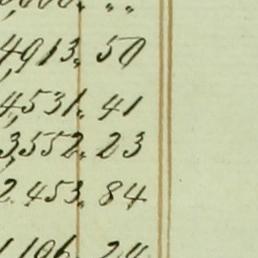 4,913. 50
4,531. 41
3,552. 23
2.453. 84
1,106. 24